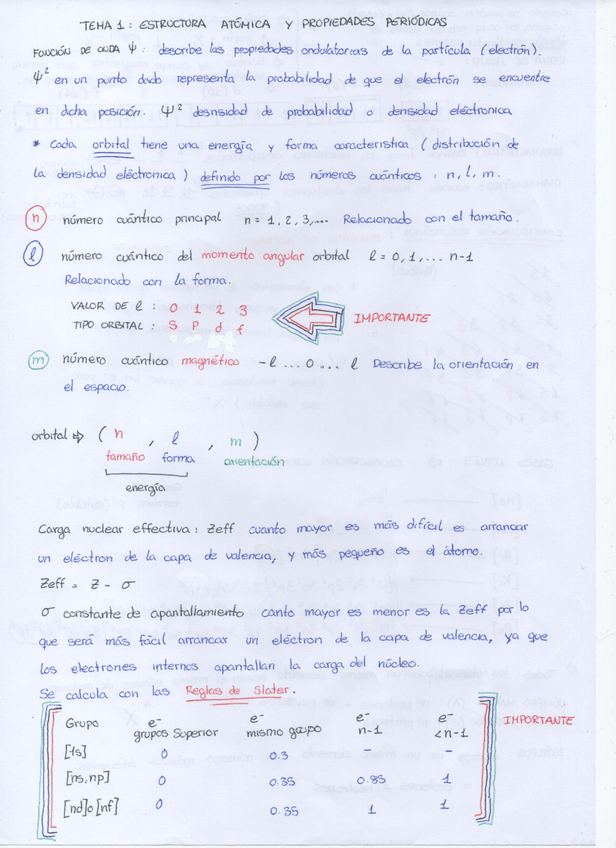 TEMA 1: ESTRUCTURA ATÓMICA Y PROPIEDADES PERIÓDICAS
FUNCIÓN DE ONDA Ψ: describe las propiedades ondulatorias de la partícula (electrón).
Ψ² en un punto dado representa la probabilidad de que el electrón se encuentre
en dicha posición. Ψ² desnsidad de probabilidad o densidad eléctronica
* Cada orbital tiene una energía y forma caracteristica (distribución de
la densidad eléctronica) definido por los números cuánticos: n, l, m.
n número cuántico principal n = 1, 2, 3,... Relacionado con el tamaño.
l número cuántico del momento angular orbital l = 0, 1, ... n-1
Relacionado con la forma.
VALOR DE l: 0 1 2 3
TIPO ORBITAL: S P d f
IMPORTANTE
m número cuántico magnético -l ... 0 ... l Describe la orientación en
el espacio.
orbital ⇒ (n, l, m)
tamaño forma orientación
energía
Carga nuclear effectiva: Zeff cuanto mayor es más difícil es arrancar
un eléctron de la capa de valencia, y más pequeño es el átomo.
Zeff = Z - σ
σ constante de apantallamiento canto mayor es menor es la Zeff por lo
que será más fácil arrancar un eléctron de la capa de valencia, ya que
los electrones internos apantallan la carga del núcleo.
Se calcula con las Reglas de Slater.
Grupo e⁻ grupos Superior e⁻ mismo grupo e⁻ n-1 e⁻ <n-1
IMPORTANTE
[1s] 0 0.3 - -
[ns,np] 0 0.35 0.85 1
[nd] o [nf] 0 0.35 1 1